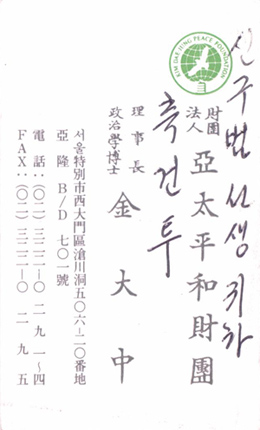 KIM DAE JUNG PEACE FOUNDATION
신구범 선생 귀하
財團
法人
亞太平和財團
축 건투
理事長
政治學博士
金大中
서울特別市西大門區滄川洞五○六-二○番地
亞隆 B/D 七○一號
電話:(○二)三二二-○二九一~四
FAX:(○二)三二二-○二九五